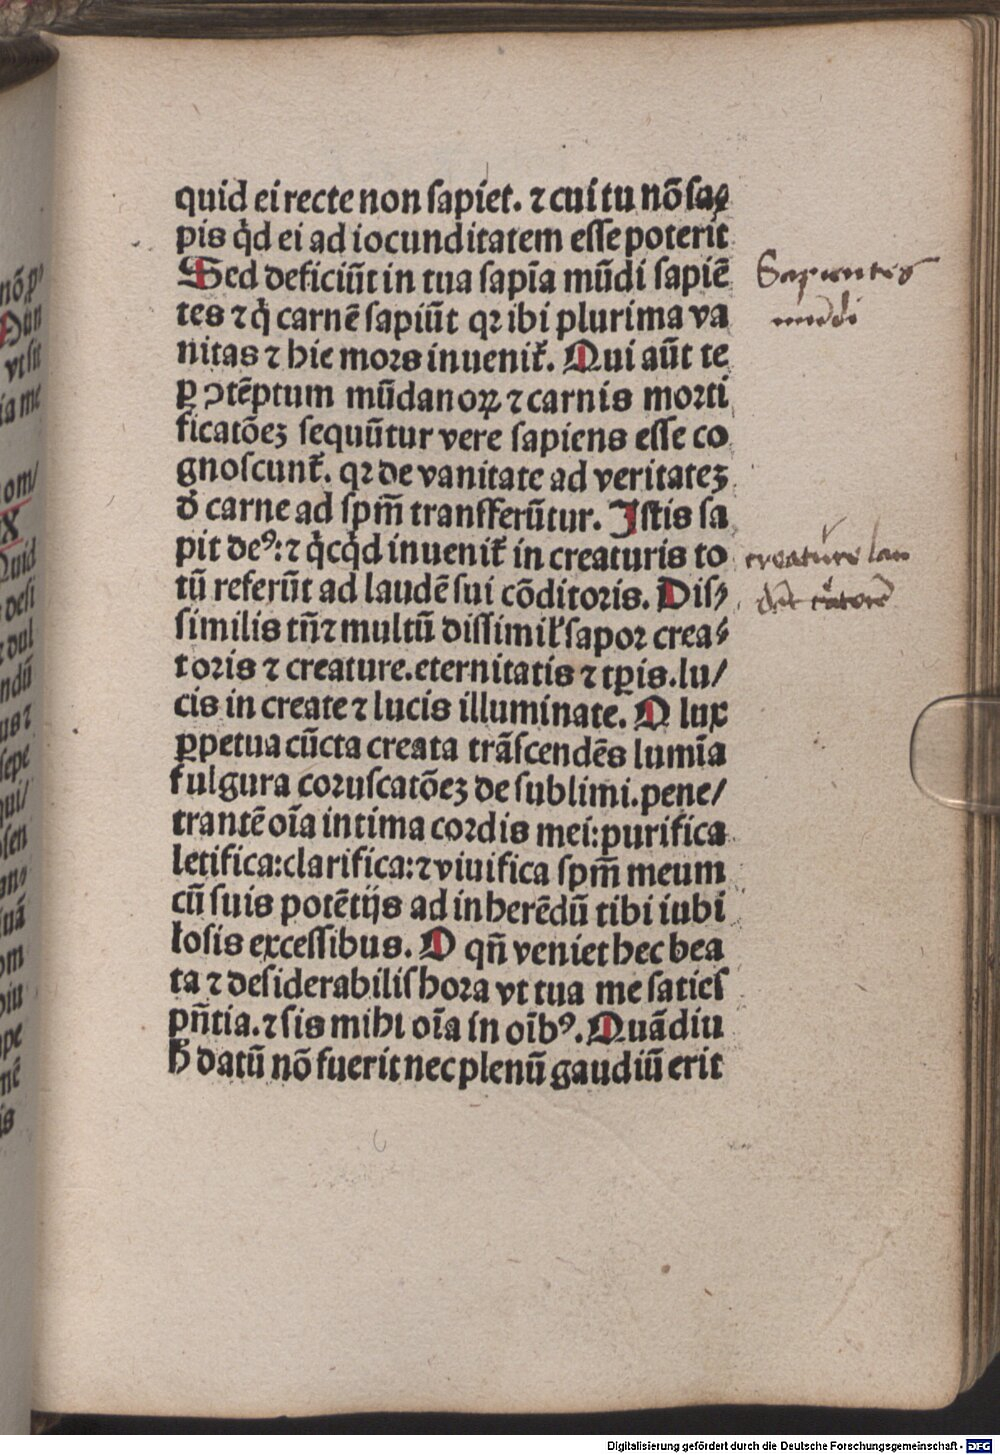 quid ei recte non ſapiet. ⁊ cui tu nō ſa⸗
pis q̇d ei ad iocunditatem eſſe poterit
Sed deficiūt in tua ſapīa mūdi ſapiē
tes ⁊ q̇ carnē ſapiūt qꝛ ibi plurima va
nitas ⁊ hic moꝛs inuenit̄. Qui aūt te
ꝑ ↄtēptum mūdanoꝝ ⁊ carnis moꝛti
ficatōeꝫ ſequūtur vere ſapiens eſſe co
gnoſcunt̄. qꝛ de vanitate ad veritateꝫ
đ carne ad ſpm̄ tranſferūtur. Iſtis ſa
pit deꝰ: ⁊ q̇cq̇d inuenit̄ in creaturis to
tū referūt ad laudē ſui cōditoris. Diſ⸗
ſimilis tn̄ ⁊ multū diſſimil̄ ſapoꝛ crea⸗
toris ⁊ creature. eternitatis ⁊ tꝑis. lu/
cis in create ⁊ lucis illuminate. O lux
ꝑpetua cūcta creata trāſcendēs lumīa
fulgura coꝛuſcatōeꝫ de ſublimi. pene/
trantē oīa intima coꝛdis mei: purifica
letifica: clarifica: ⁊ viuifica ſpm̄ meum
cū ſuis potētijs ad inherēdū tibi iubi
loſis exceſſibus. O qn̄ veniet hec bea
ta ⁊ deſiderabiliſ hora vt tua me ſatieſ
pn̄tia. ⁊ ſis mihi oīa in oīb⁹. Quādiu
h̄ datū nō fuerit nec plenū gaudiū erit
Sapientes
mūdi
creature lau
dēt
nō p
Dūn
vt ſit
ia me
om/
IX
Quid
deſi
dul
ndū
us ⁊
ſepe
qui/
ſen
uā
om
diu
pe
mē
is
Digitalisierung gefördert durch die Deutsche Forschungsgemeinschaft - DFG